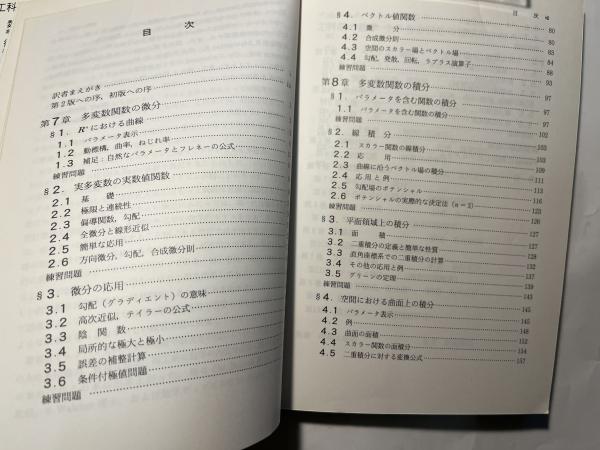 工科
目 次
訳者まえがき
第2版への序，初版への序
第7章 多変数関数の微分
§1. Rⁿにおける曲線
1.1 パラメータ表示
1.2 動標構，曲率，ねじれ率
1.3 補足：自然なパラメータとフレネーの公式
練習問題
§2. 実多変数の実数値関数
2.1 基 礎
2.2 極限と連続性
2.3 偏導関数，勾配
2.4 全微分と線形近似
2.5 簡単な応用
2.6 方向微分，勾配，合成微分則
練習問題
§3. 微分の応用
3.1 勾配（グラディエント）の意味
3.2 高次近似，テイラーの公式
3.3 陰 関 数
3.4 局所的な極大と極小
3.5 誤差の補整計算
3.6 条件付極値問題
練習問題
目 次
§4. ベクトル値関数 80
4.1 微 分 80
4.2 合成微分則 83
4.3 空間のスカラー場とベクトル場 84
4.4 勾配，発散，回転，ラプラス演算子 88
練習問題 93
第8章 多変数関数の積分 97
§1. パラメータを含む関数の積分 97
1.1 パラメータを含む関数の積分 97
練習問題 102
§2. 線 積 分 103
2.1 スカラー関数の線積分 103
2.2 応 用
2.3 曲線に沿うベクトル場の積分 109
2.4 応 用 と 例 111
2.5 勾配場のポテンシャル 113
2.6 ポテンシャルの実際的な決定法（n＝2） 116
練習問題 123
§3. 平面領域上の積分 127
3.1 面 積 127
3.2 二重積分の定義と簡単な性質 127
3.3 直角座標系での二重積分の計算
3.4 その他の応用と例 137
3.5 グリーンの定理 139
練習問題 143
§4. 空間における曲面上の積分 145
4.1 パラメータ表示 145
4.2 例
4.3 曲面の面積
4.4 スカラー関数の面積分 152
4.5 二重積分に対する変換公式 157